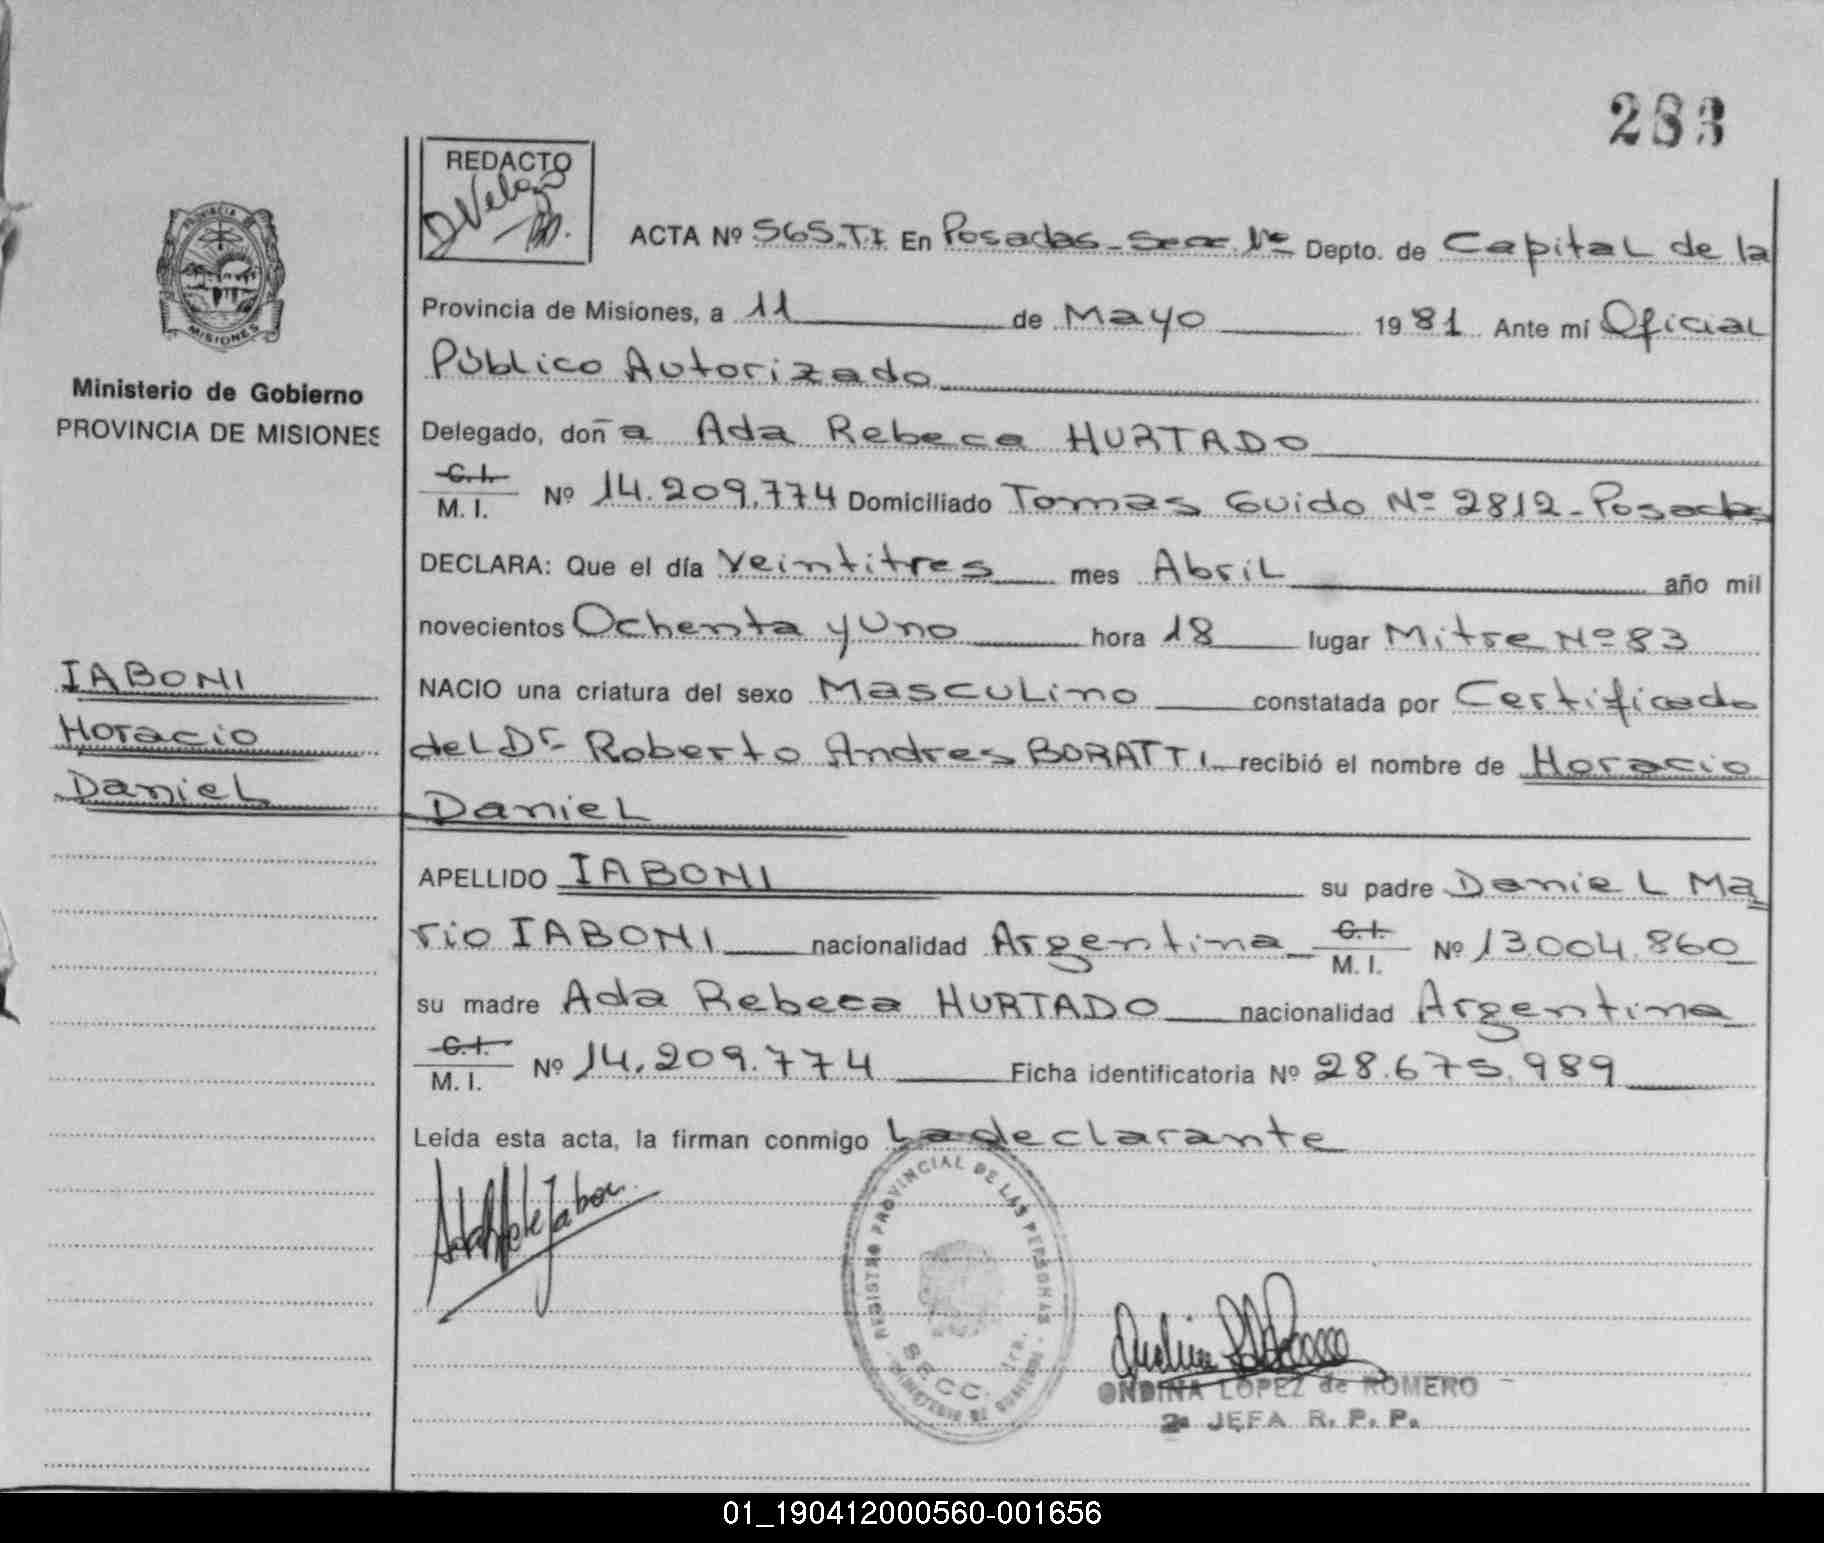 283
REDACTO
PROVINCIA DE
MISIONES
Ministerio de Gobierno
PROVINCIA DE MISIONES
IABONI
Horacio
Daniel
ACTA Nº 565.T.I En Posadas - Secc. 1º Depto. de Capital de la
Provincia de Misiones, a 11 de Mayo 1981 Ante mí Oficial
Público Autorizado
Delegado, doña Ada Rebeca HURTADO
C.I. M.I. Nº 14.209.774 Domiciliado Tomas Guido Nº 2812 - Posadas
DECLARA: Que el día Veintitres mes Abril año mil
novecientos Ochenta y Uno hora 18 lugar Mitre Nº 83
NACIO una criatura del sexo Masculino constatada por Certificado
del Dr. Roberto Andres BORATTI recibió el nombre de Horacio
Daniel
APELLIDO IABONI su padre Daniel Ma
rio IABONI nacionalidad Argentina C.I. M.I. Nº 13.004.860
su madre Ada Rebeca HURTADO nacionalidad Argentina
C.I. M.I. Nº 14.209.774 Ficha identificatoria Nº 28.675.989
Leída esta acta, la firman conmigo La declarante
REGISTRO PROVINCIAL DE LAS PERSONAS
SECC. 1ra.
MINISTERIO DE GOBIERNO
ONDINA LOPEZ de ROMERO
2a JEFA R. P. P.
01_190412000560-001656